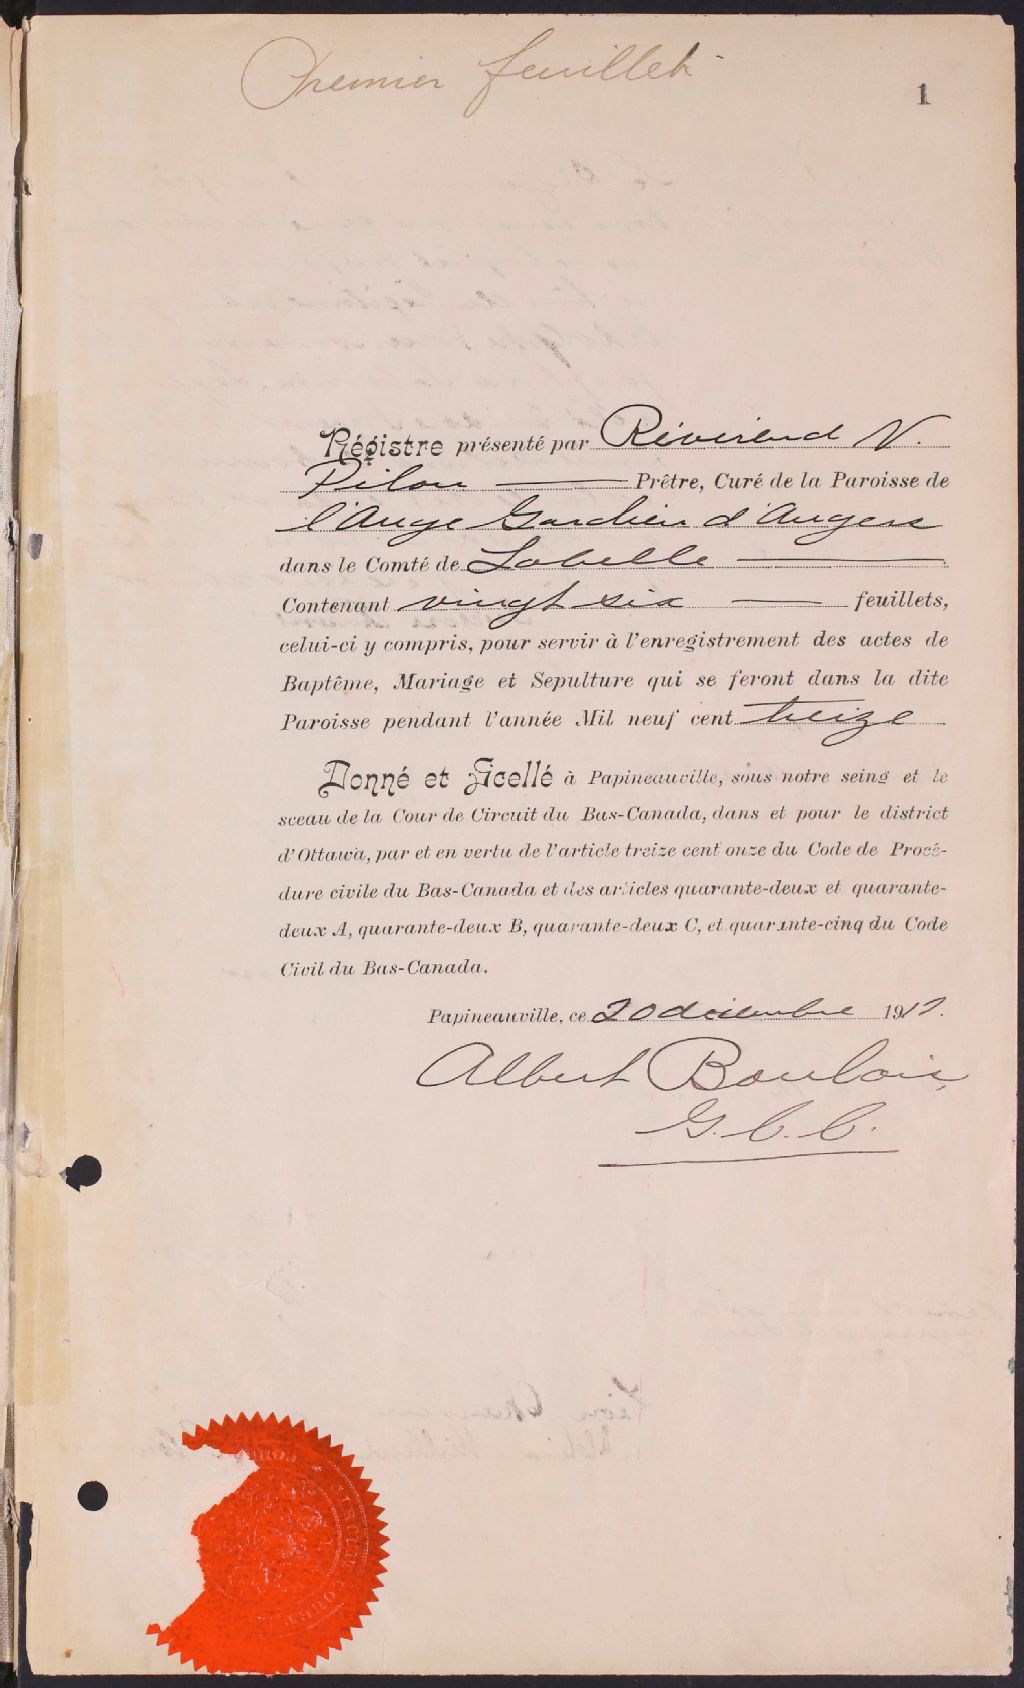 Premier feuillet
1
Régistre présenté par Révérend V.
Pilon Prêtre, Curé de la Paroisse de
l'Ange Gardien d'Angers
dans le Comté de Labelle
Contenant vingt six feuillets,
celui-ci y compris, pour servir à l'enregistrement des actes de
Baptême, Mariage et Sepulture qui se feront dans la dite
Paroisse pendant l'année Mil neuf cent treize
Donné et Ficellé à Papineauville, sous notre seing et le
sceau de la Cour de Circuit du Bas-Canada, dans et pour le district
d'Ottawa, par et en vertu de l'article treize cent onze du Code de Procé-
dure civile du Bas-Canada et des articles quarante-deux et quarante-
deux A, quarante-deux B, quarante-deux C, et quarante-cinq du Code
Civil du Bas-Canada.
Papineauville, ce 20 décembre 1912.
Albert Boulais
G. C. C.
CIRCUIT COURT